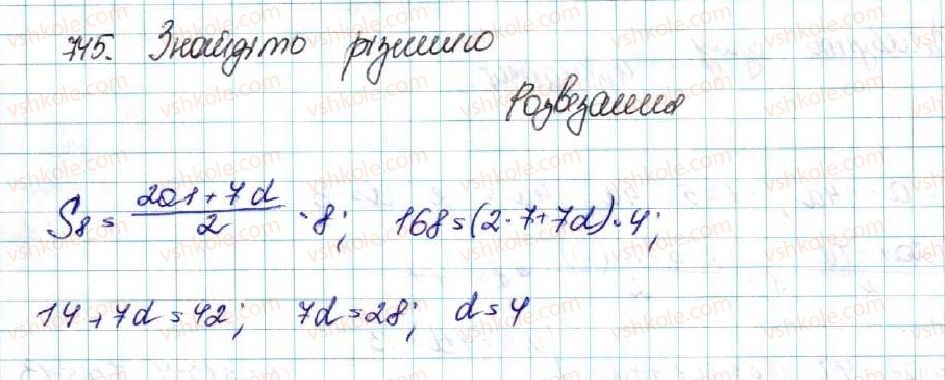 745. Знайдіто різницю
Розвезання
S₈ = (2a₁ + 7d)/2 · 8; 168 = (2·7+7d)·4;
14+7d=42; 7d=28; d=4